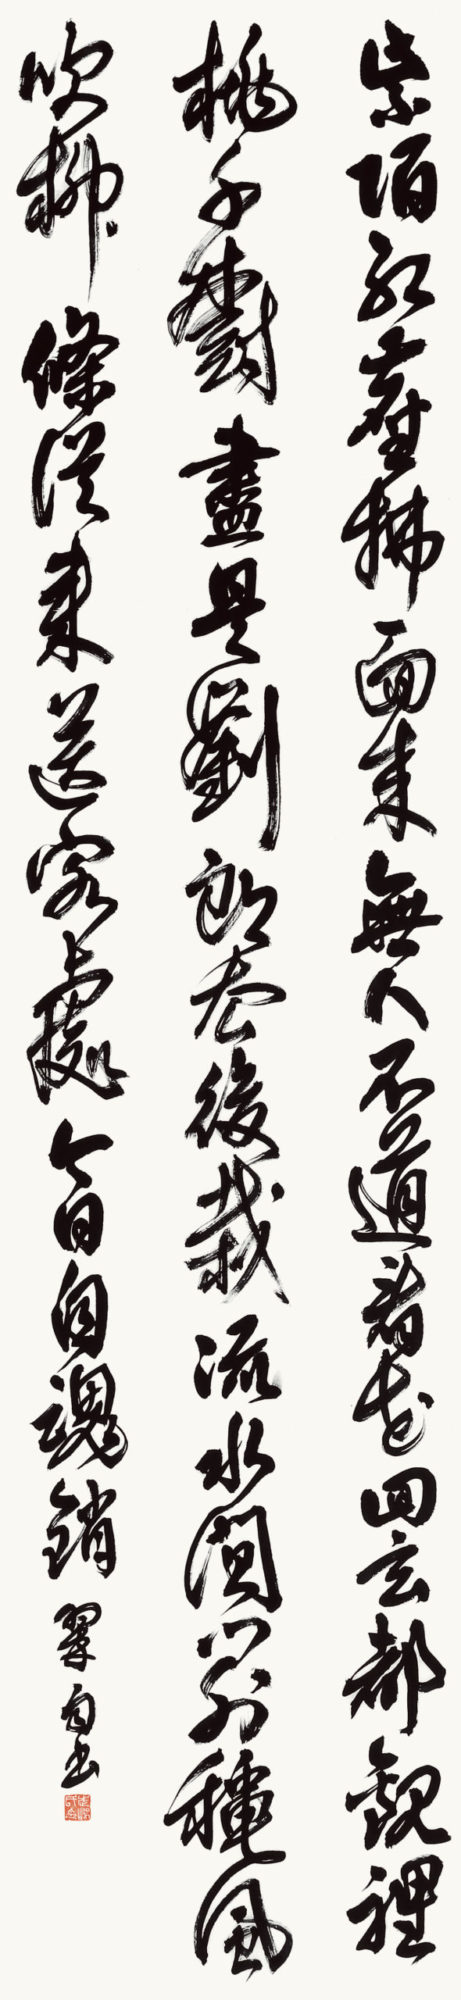 紫陌紅塵拂面來無人不道看花回玄都觀裡
桃千樹盡是劉郎去後栽流水閶門外穐風
吹柳條從來送客處今日自魂銷